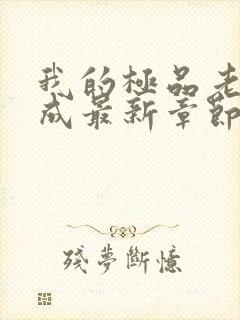 我的極品老
成最新章節
殘夢斷憶